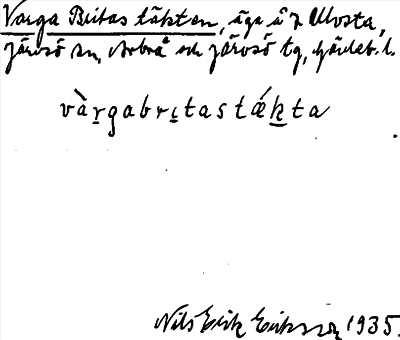 Varga Britas täkten, äga å 7 Ulvsta,
Järvsö sn, Arbrå och Järvsö tg, Gävleb. l.
vàrgabritastǽkta
Nils Erik Eriksson 1935.